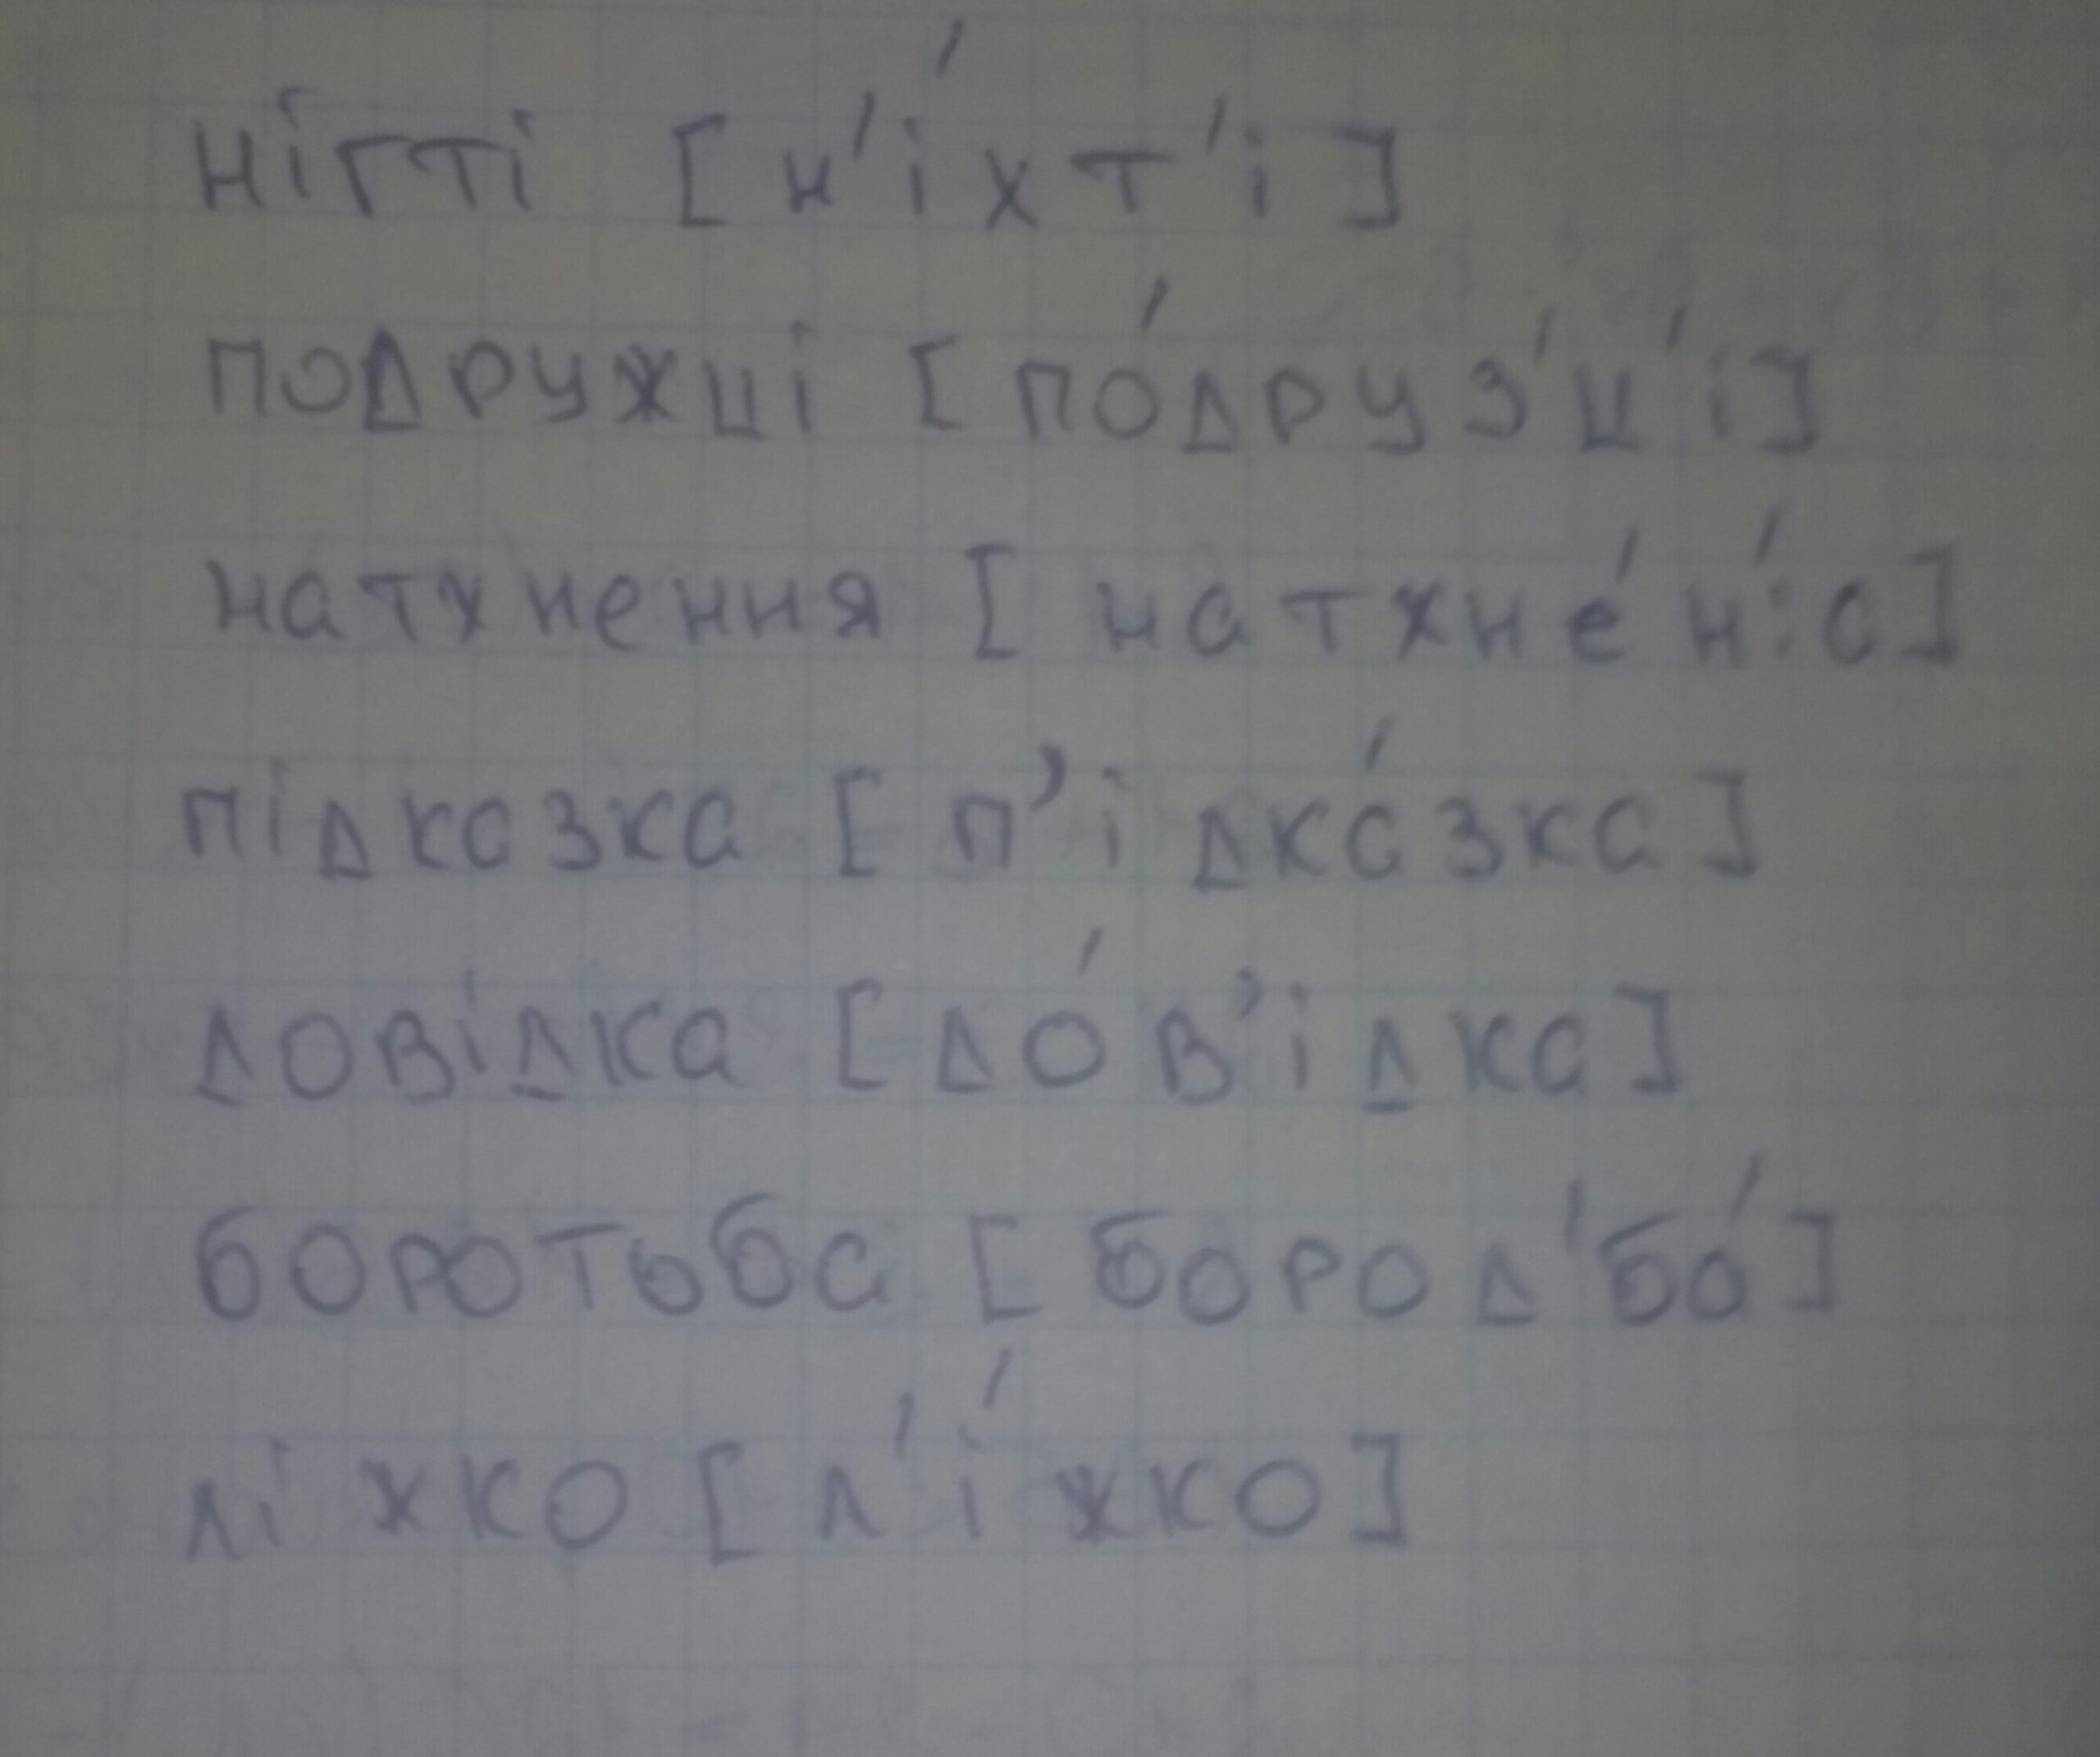 нігті [н'і́хт'і]
подружці [по́друз'ц'і]
натхнення [натхне́н':а]
підказка [п’ідка́зка]
довідка [до́в’ідка]
боротьба [бород'ба́]
ліжко [л'і́жко]